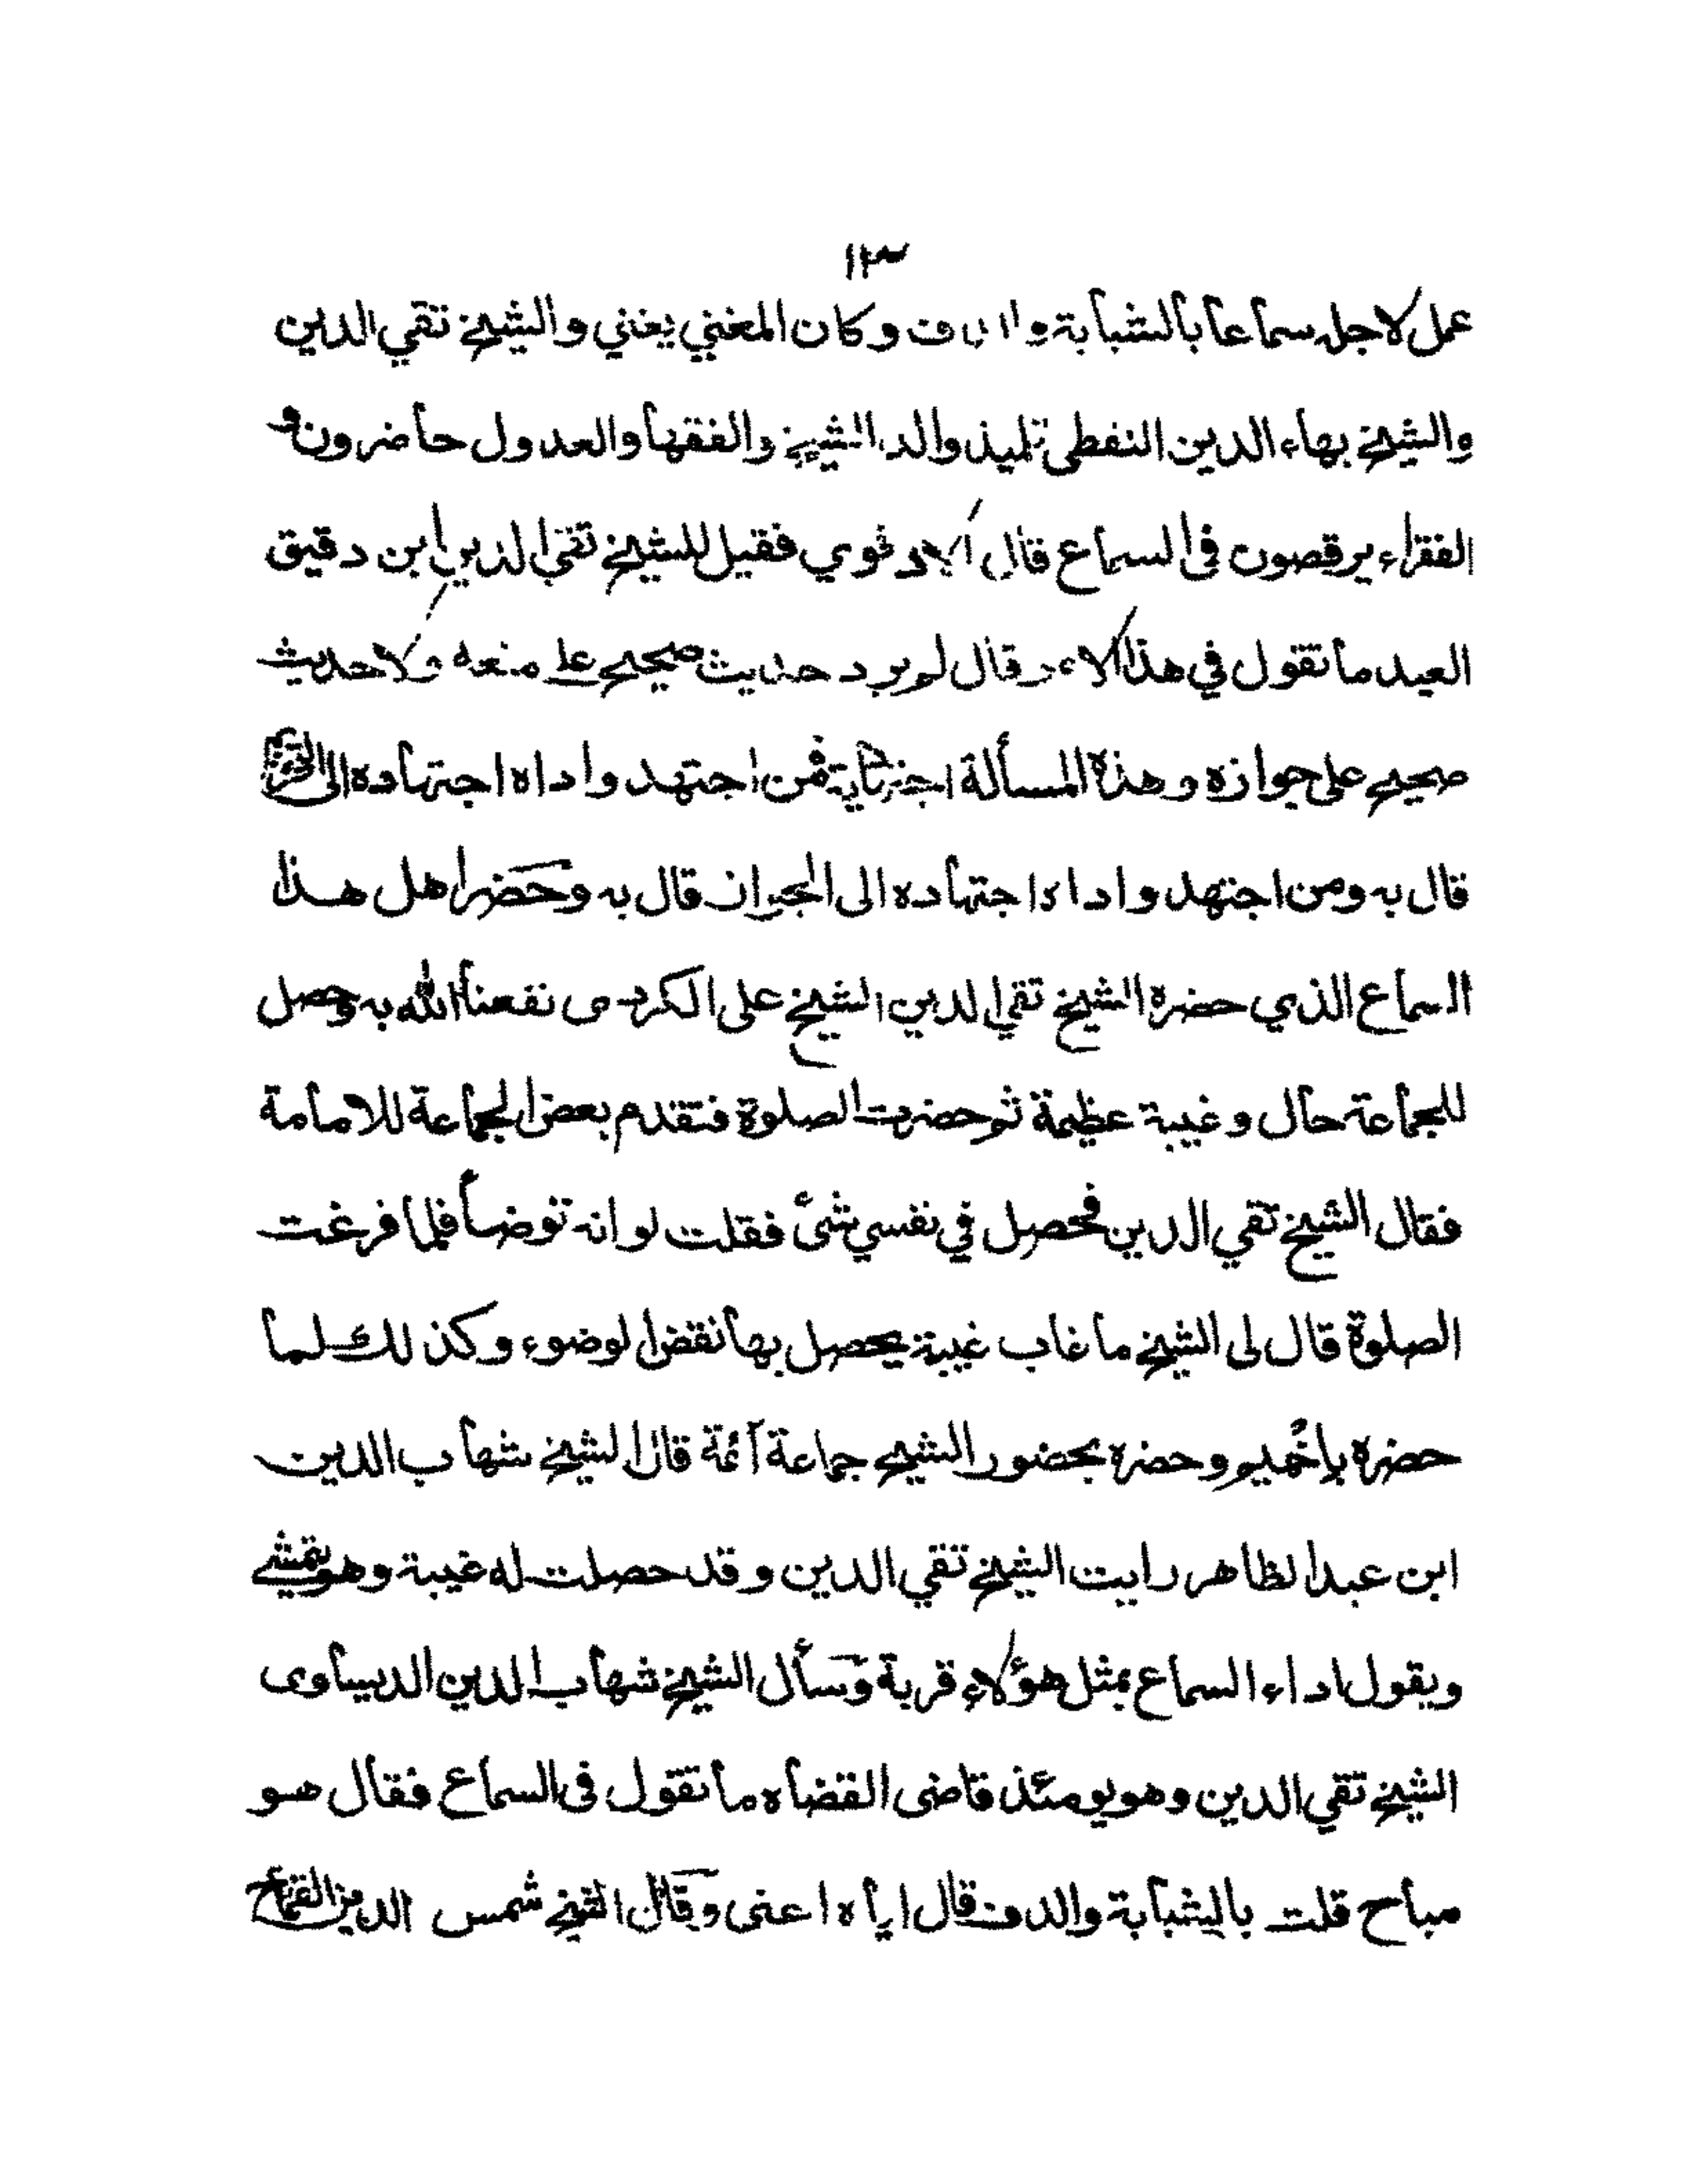 ١٢٣
عمل لاجله سماعا بالشبابة و ف وكان المغني يغني والشيخ تقي الدين
والشيخ بهاء الدين النفطى تلميذ والد الشيخ والفقها والعدول حاضرون و
الفقراء يرقصون فى السماع قال الادفوي فقيل للشيخ تقي الدين ابن دقيق
العيد ما تقول في هذا الامر قال لم يرد حديث صحيح على منعه ولا حديث
صحيح على جوازه وهذه المسألة اجتهادية فمن اجتهد واداه اجتهاده الى التحريم
قال به ومن اجتهد واداه اجتهاده الى الجواز قال به وحضر اهل هذا
السماع الذي حضره الشيخ تقي الدين الشيخ على الكردى نفعنا الله به وحصل
للجماعة حال وغيبة عظيمة ثم حضرت الصلوة فتقدم بعض الجماعة للامامة
فقال الشيخ تقي الدين فحصل في نفسي شئ فقلت لو انه توضأ فلما فرغت
الصلوة قال لى الشيخ ما غاب غيبة يحصل بها نقض الوضوء وكذلك لما
حضره بإخميم وحضره بحضور الشيخ جماعة آئمة قال الشيخ شهاب الدين
ابن عبد الظاهر رايت الشيخ تقي الدين وقد حصلت له غيبة وهو يمشي
ويقول اداء السماع بمثل هؤلاء قربة وسأل الشيخ شهاب الدين
الشيخ تقي الدين وهو يومئذ قاضى القضاه ما تقول فى السماع فقال هو
مباح قلت بالشبابة والدف قال اياه اعنى وقال الشيخ شمس الدين القماح